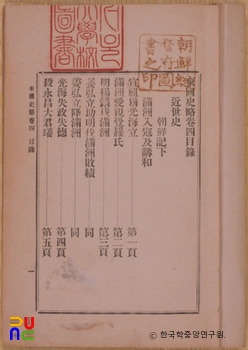 東國史略卷四目錄
近世史
朝鮮記下
滿洲入寇及講和
宣祖崩光海立 第一頁
滿洲愛親覺羅氏 第二頁
明楊鎬滿洲 第三頁
姜弘立助明伐滿洲敗績 同
姜弘立降滿洲 同
光海失政失德 第四頁
殺永昌大君㼁 第五頁
東國史略卷四 目錄
一
朝鮮總督府圖書之印
한국학중앙연구원